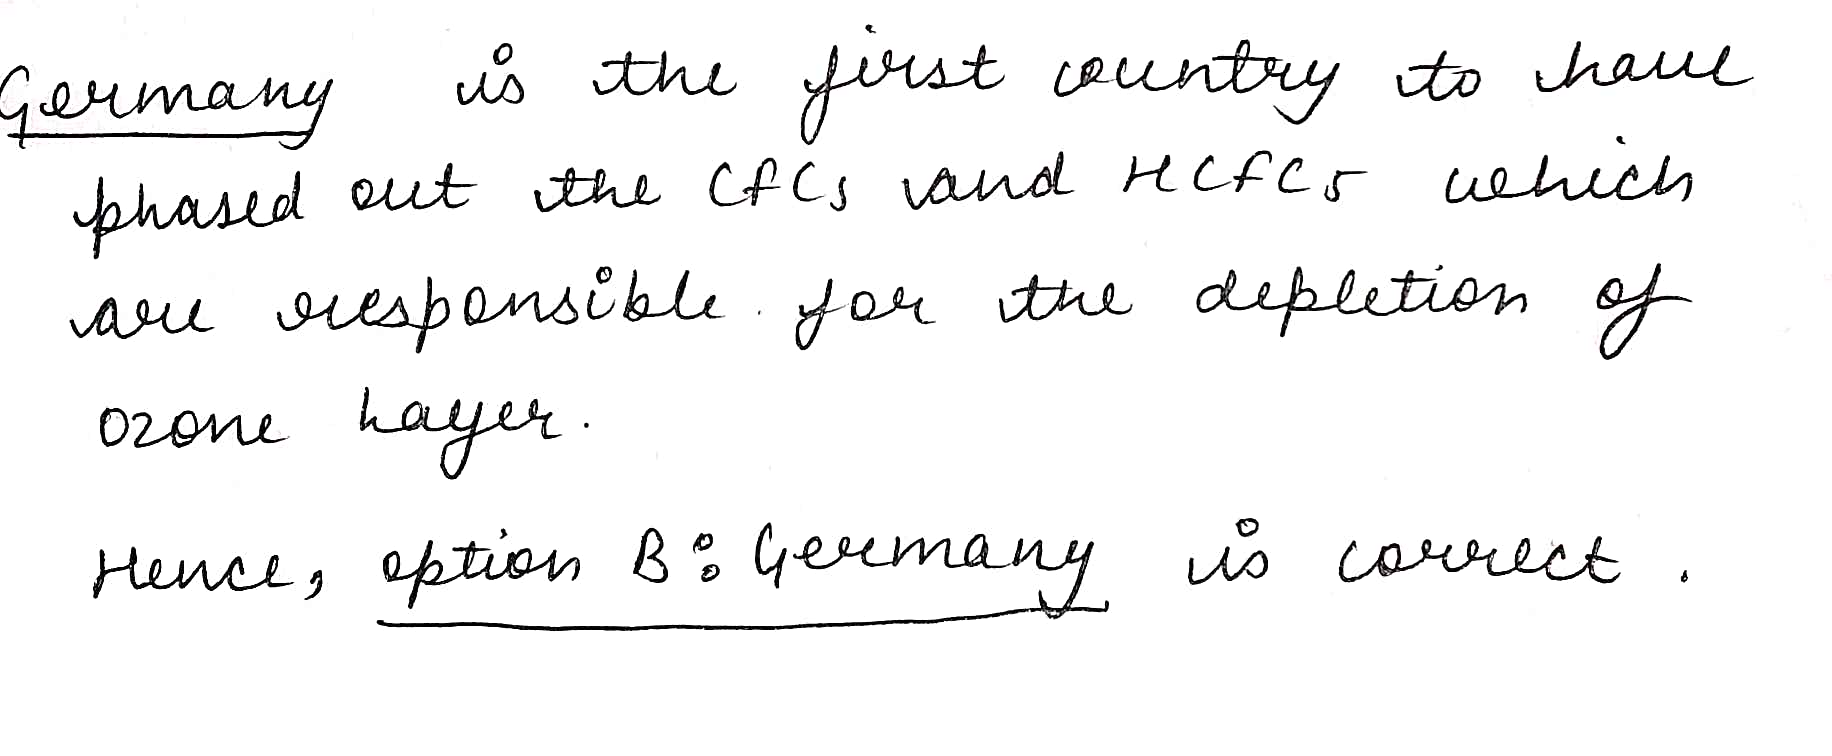 Germany is the first country to have
phased out the CFCs and HCFCs which
are responsible for the depletion of
ozone Layer.
Hence, option B: Germany is correct.